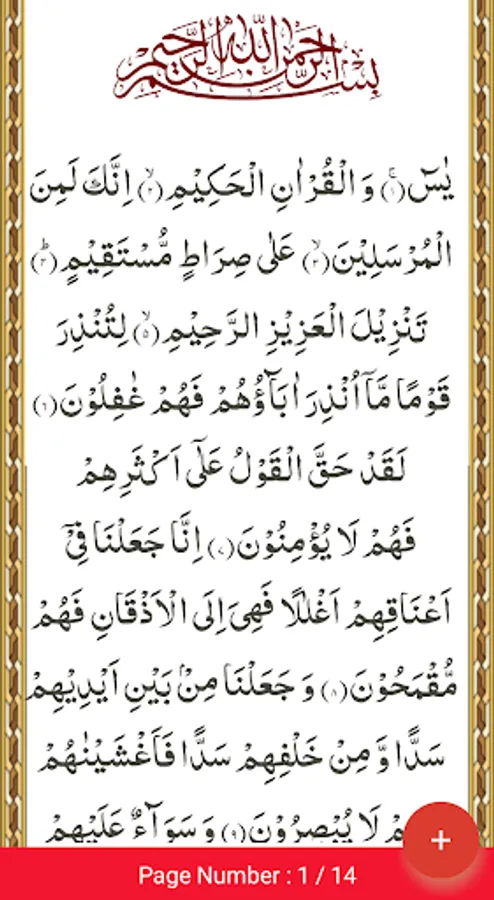 بِسْمِ اللّٰهِ الرَّحْمٰنِ الرَّحِيْمِ
يٰسٓ ۚ﴿۱﴾ وَ الْقُرْاٰنِ الْحَكِيْمِ ۙ﴿۲﴾ اِنَّكَ لَمِنَ
الْمُرْسَلِيْنَ ۙ﴿۳﴾ عَلٰى صِرَاطٍ مُّسْتَقِيْمٍ ؕ﴿۴﴾
تَنْزِيْلَ الْعَزِيْزِ الرَّحِيْمِ ۙ﴿۵﴾ لِتُنْذِرَ
قَوْمًا مَّاۤ اُنْذِرَ اٰبَآؤُهُمْ فَهُمْ غٰفِلُوْنَ ﴿۶﴾
لَقَدْ حَقَّ الْقَوْلُ عَلٰۤى اَكْثَرِهِمْ
فَهُمْ لَا يُؤْمِنُوْنَ ﴿۷﴾ اِنَّا جَعَلْنَا فِيْۤ
اَعْنَاقِهِمْ اَغْلٰلًا فَهِيَ اِلَى الْاَذْقَانِ فَهُمْ
مُّقْمَحُوْنَ ﴿۸﴾ وَ جَعَلْنَا مِنْۢ بَيْنِ اَيْدِيْهِمْ
سَدًّا وَّ مِنْ خَلْفِهِمْ سَدًّا فَاَغْشَيْنٰهُمْ
لَا يُبْصِرُوْنَ ﴿۹﴾ وَ سَوَآءٌ عَلَيْهِمْ
+
Page Number : 1 / 14